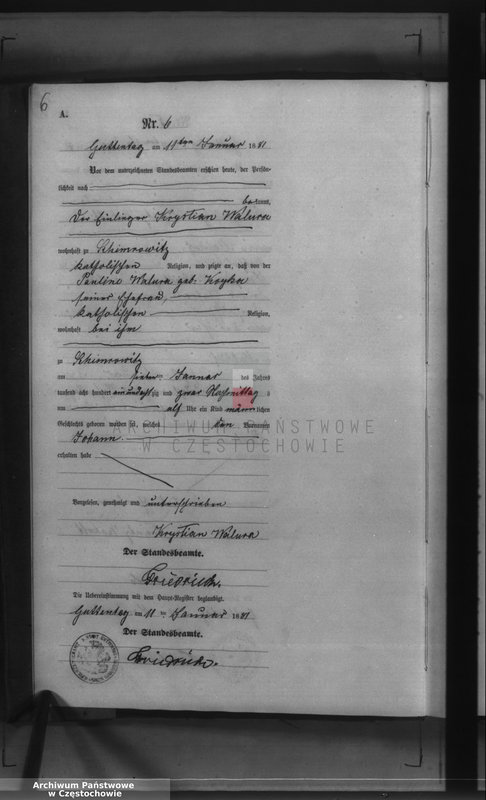 6
A.
Nr. 6
Guttentag am 11ten Januar 1881
Vor dem unterzeichneten Standesbeamten erschien heute, der Persön-
lichkeit nach
kannt,
Der Einlieger Krystian Walura
wohnhaft zu
katholischen Religion, und zeigte an, daß von der
Pauline Walura geb.
seiner Ehefrau,
katholischen Religion,
wohnhaft bei ihm
zu
am Januar des Jahres
tausend acht hundert zig und zwar Nachmittag s
um elf Uhr ein Kind männlichen
Geschlechts geboren worden sei, welches den Vornamen
Johann
erhalten habe
ARCHIWUM PAŃSTWOWE
W CZĘSTOCHOWIE
Vorgelesen, genehmigt und unterschrieben
Krystian Walura
Der Standesbeamte.
Friedrich.
Die Uebereinstimmung mit dem Haupt-Register beglaubigt.
Guttentag am 11ten Januar 1881
Der Standesbeamte.
Friedrich.
Archiwum Państwowe
w Częstochowie